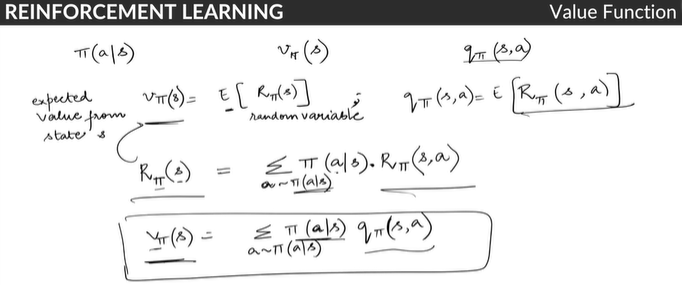 REINFORCEMENT LEARNING Value Function
π(a|s) v_π(s) q_π(s,a)
expected value from state s v_π(s) = E[R_π(s)] random variable q_π(s,a) = E[R_π(s,a)]
R_π(s) = Σ_{a~π(a|s)} π(a|s) . R_π(s,a)
v_π(s) = Σ_{a~π(a|s)} π(a|s) q_π(s,a)